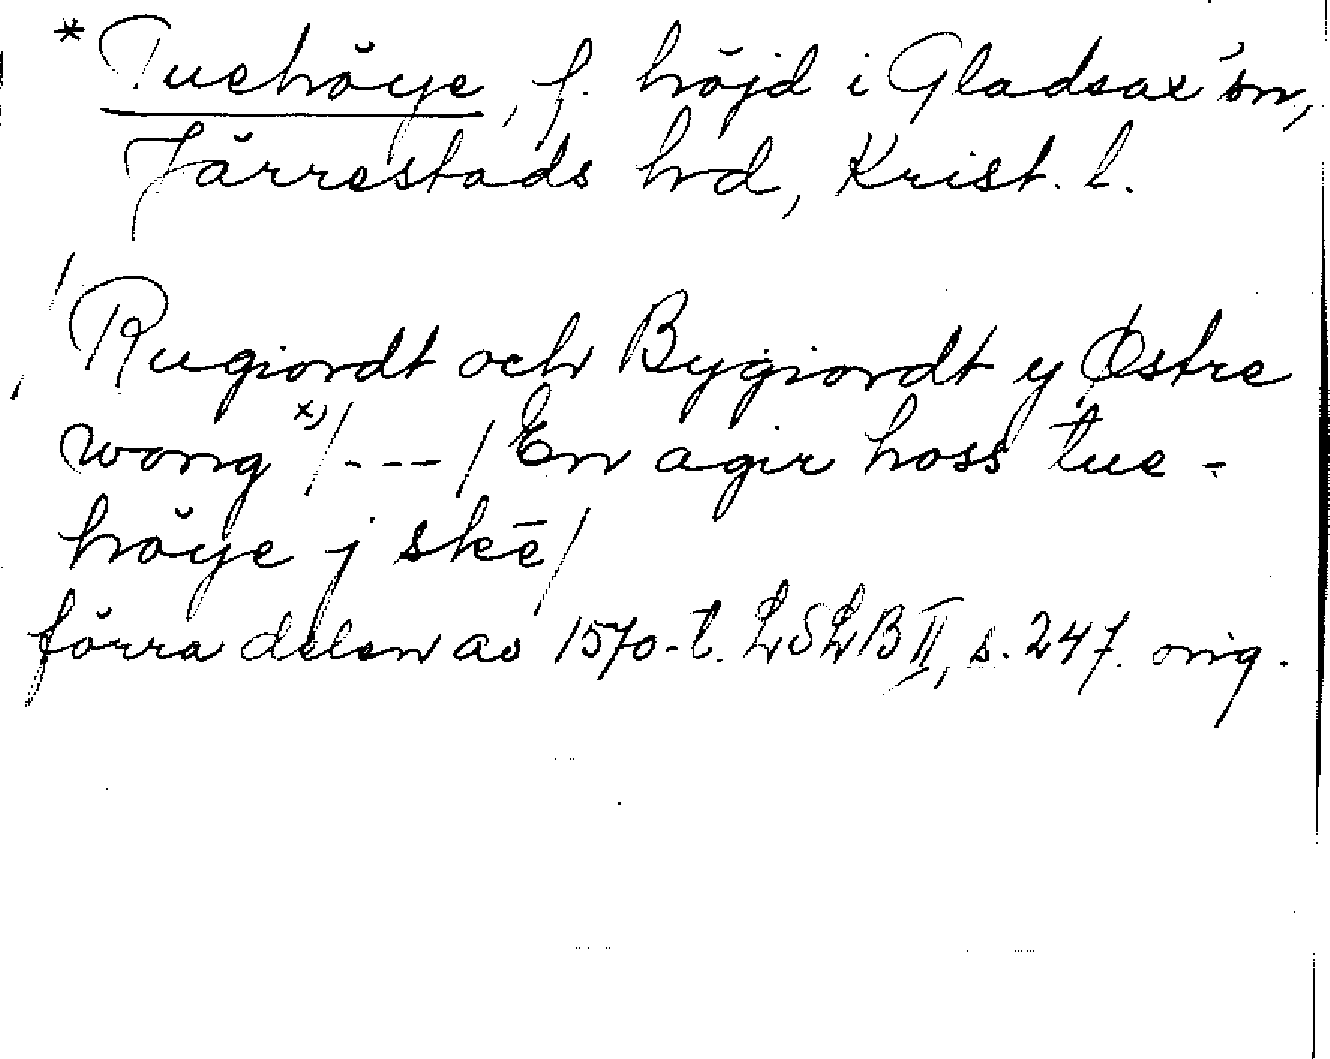 *Tuehöye, f. höjd i Gladsax sn,
Järrestads hd, Krist. l.
/Rugiordt och Bygiordt y Østre
wong x)/---/ En agir hoss tue-
höye j skē/
förra delen av 1570-t. LSLB II, s. 247. orig.